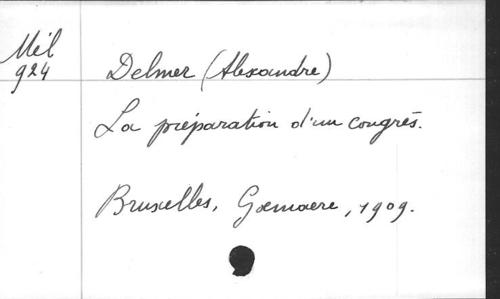 Mél
924
Delmer (Alexandre)
La préparation d'un congrès.
Bruxelles, Goemaere, 1909.